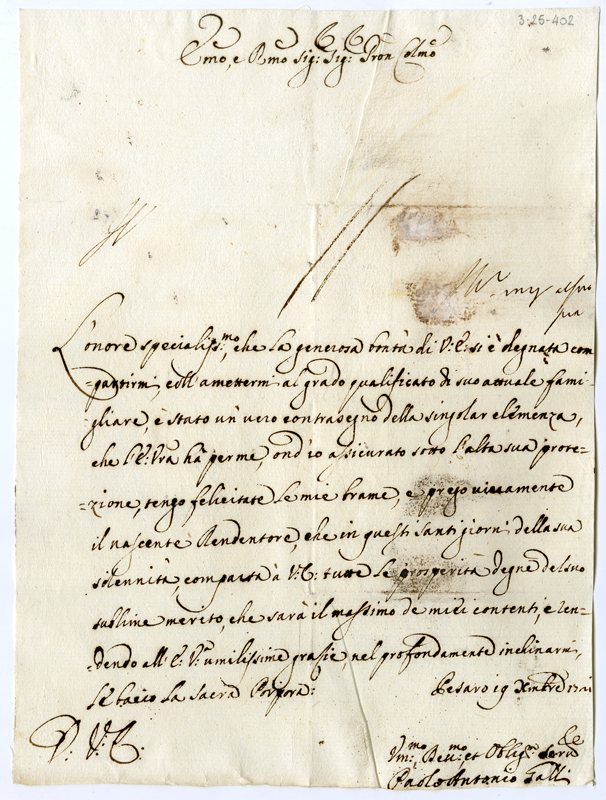 3-25-402
Emo, e Rmo Sig: Sig: Pron Colmo
L'onore specialiss:mo, che la generosa bontà di V: E: si è degnata com
=partirmi, coll'amettermi al grado qualificato di suo attuale fami=
gliare, è stato un vero contrasegno della singolar clemenza,
che l'E: Vra hà per me, ond'io assicurato sotto l'alta sua prote=
=zione, tengo felicitate le mie brame, e prego vivamente
il nascente Rendentore, che in questi santi giorni della sua
solennità, comparta à V: E: tutte le prosperità degne del suo
sublime merito, che sarà il massimo de miei contenti, e ren=
=dendo all'E: V: umilissime grazie, nel profondamente inchinarmi,
le bacio la Sacra Porpora:
Pesaro 19 Xmbre
D: V: E:
Um:mo Dev:mo et Oblig:mo Serv:re
Paolo Antonio Galli